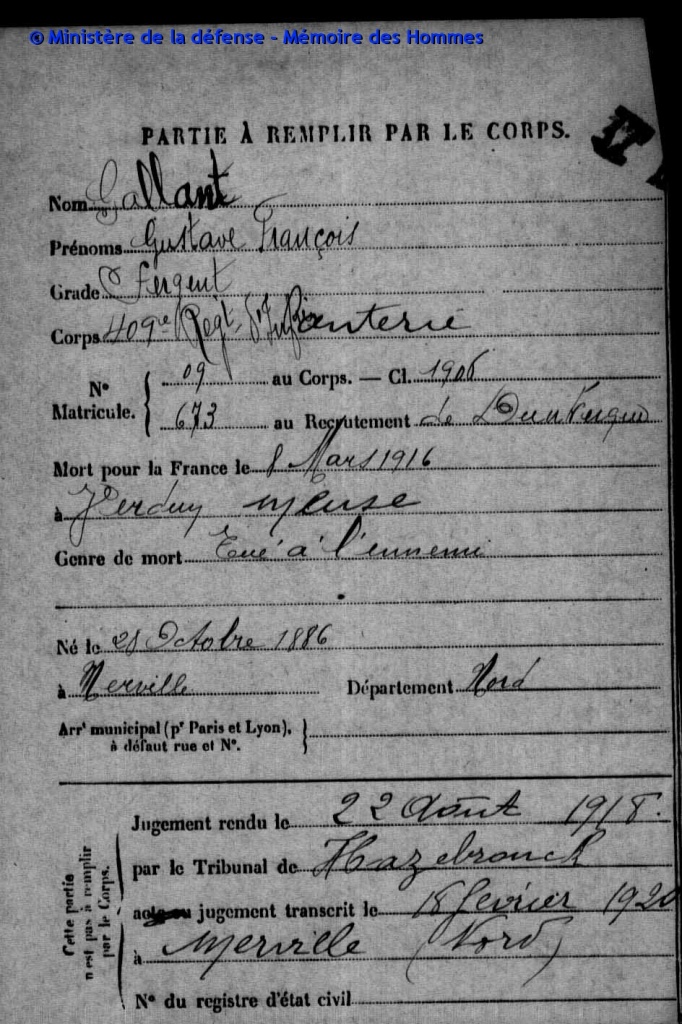 © Ministère de la défense - Mémoire des Hommes
PARTIE À REMPLIR PAR LE CORPS.
Nom Gallant
Prénoms Gustave François
Grade Sergent
Corps 409e Regt d'Infanterie
N° Matricule. { 09 au Corps. — Cl. 1906
673 au Recrutement de Dunkerque
Mort pour la France le 8 Mars 1916
à Verdun Meuse
Genre de mort Tué à l'ennemi
Né le 28 Octobre 1886
à Merville Département Nord
Arrt municipal (pr Paris et Lyon), à défaut rue et N°. }
Cette partie n'est pas à remplir par le Corps.
Jugement rendu le 22 Août 1918.
par le Tribunal de Hazebrouck
acte ou jugement transcrit le 18 février 1920
à Merville (Nord)
N° du registre d'état civil